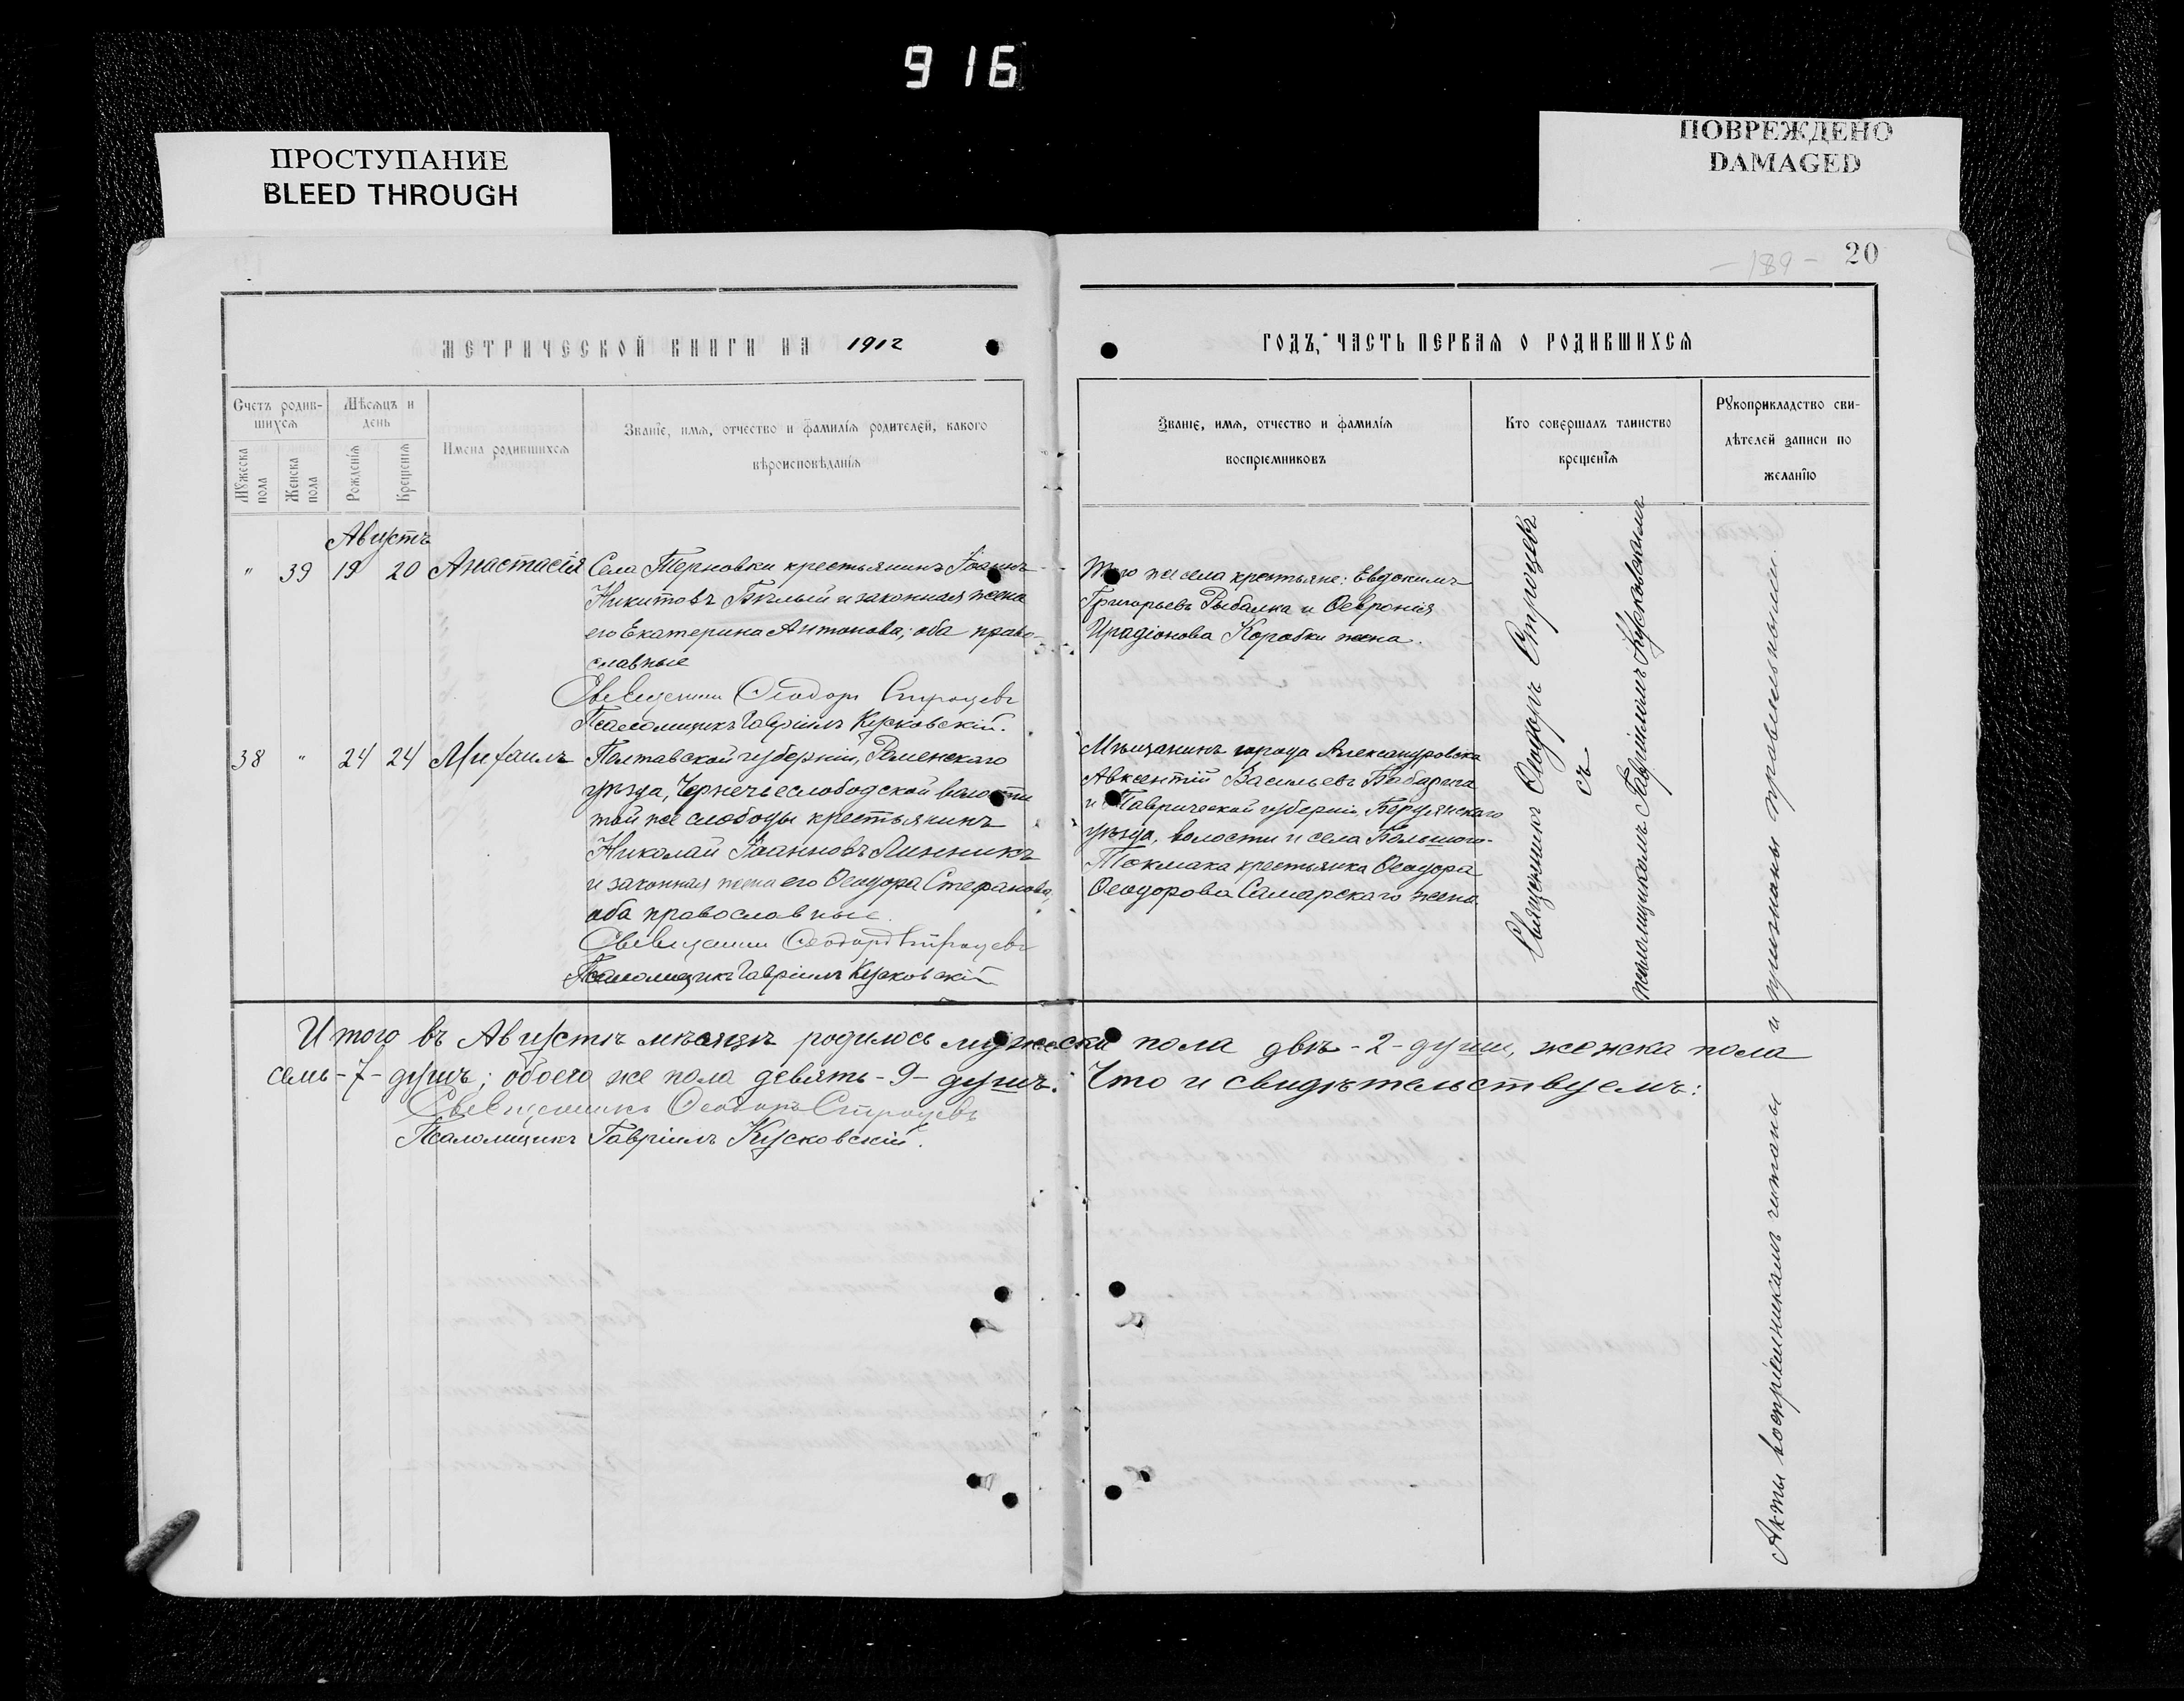 916
ПРОСТУПАНИЕ
BLEED THROUGH
ПОВРЕЖДЕНО
DAMAGED
- 189 - 20
МЕТРИЧЕСКОЙ КНИГИ НА 1912
Счетъ родившихся
Мужеска пола
Женска пола
Мѣсяцъ и день
Рожденія
Крещенія
Имена родившихся
Званіе, имя, отчество и фамилія родителей, какого
вѣроисповѣданія
Августъ
" 39 19 20 Анастасія Села Терновки крестьянинъ Іоаннъ
Никитовъ Бѣлый и законная жена
его Екатерина Антонова; оба право-
славные
Священникъ Ѳеодоръ Строцевъ
Псаломщикъ Гавріилъ Кусковскій.
38 " 24 24 Михаилъ Полтавской губерніи, Роменскаго
уѣзда, Чернечьеслободской волости
той же слободы крестьянинъ
Николай Іоанновъ Линникъ
и законная жена его Ѳеодора Стефанова,
оба православные.
Священникъ Ѳеодоръ Строцевъ
Псаломщикъ Гавріилъ Кусковскій
ГОДЪ, ЧАСТЬ ПЕРВАЯ О РОДИВШИХСЯ
Званіе, имя, отчество и фамилія
воспріемниковъ
Кто совершалъ таинство
крещенія
Рукоприкладство сви-
дѣтелей записи по
желанію
Того же села крестьяне: Евдокимъ
Григорьевъ Рыбалка и Ѳевронія
Ирадіонова Коробки жена.
Мѣщанинъ города Александровска
Авксентій Васильевъ Бабарыга
и Таврической губерніи, Бердянскаго
уѣзда, волости и села Большого-
Токмака крестьянка Ѳеодора
Ѳеодорова Самарскаго жена
Священникъ Ѳеодоръ Строцевъ
съ
псаломщикомъ Гавріиломъ Кусковскимъ
Акты воспріемникамъ читаны и признаны правильными.
Итого въ Августѣ мѣсяцѣ родилось мужеска пола двѣ -2- души, женска пола
семь -7- душъ; обоего же пола девять -9- душъ. Что и свидѣтельствуемъ:
Священникъ Ѳеодоръ Строцевъ
Псаломщикъ Гавріилъ Кусковскій.